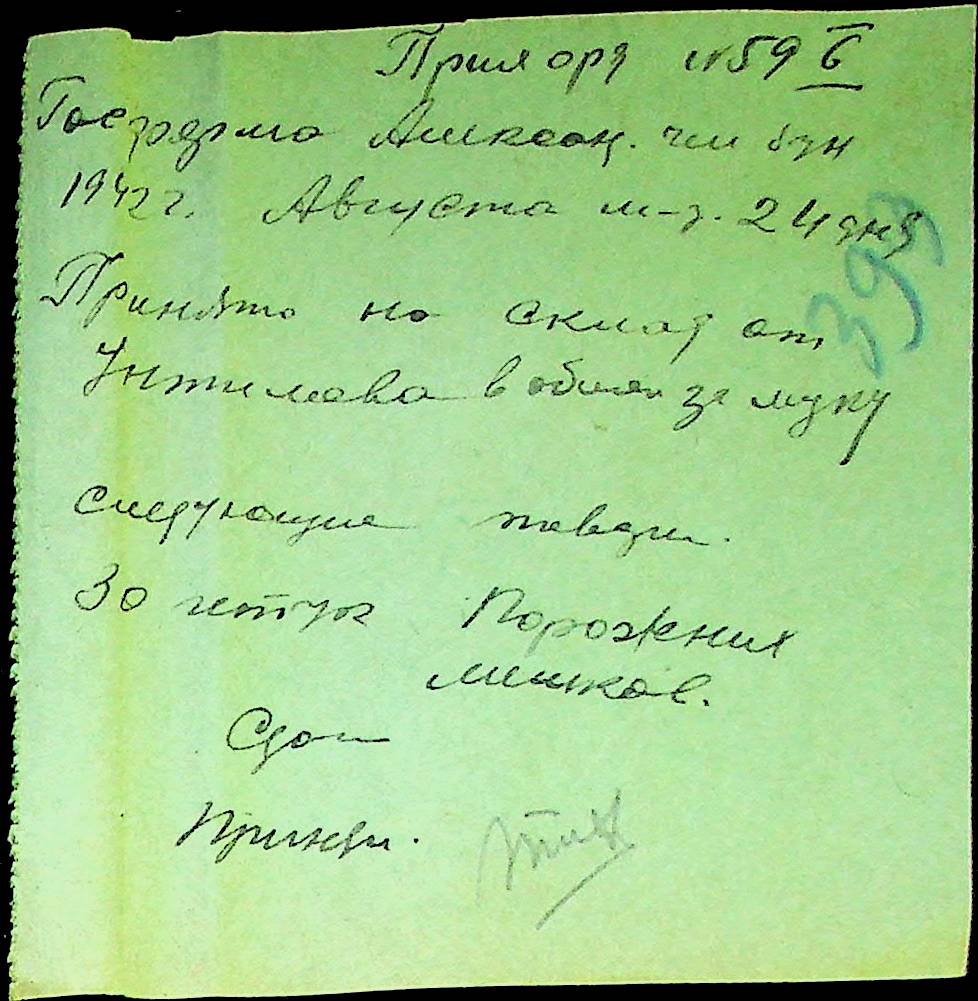 Прием орд №59 б
Госферма Алексан.
1942 г. Августа м-ц. 24 дня
399
Принято на склад от
Унтилова в обмен за муку
следующие
30 штук Порожних
мешков.
Сдал
Принял.